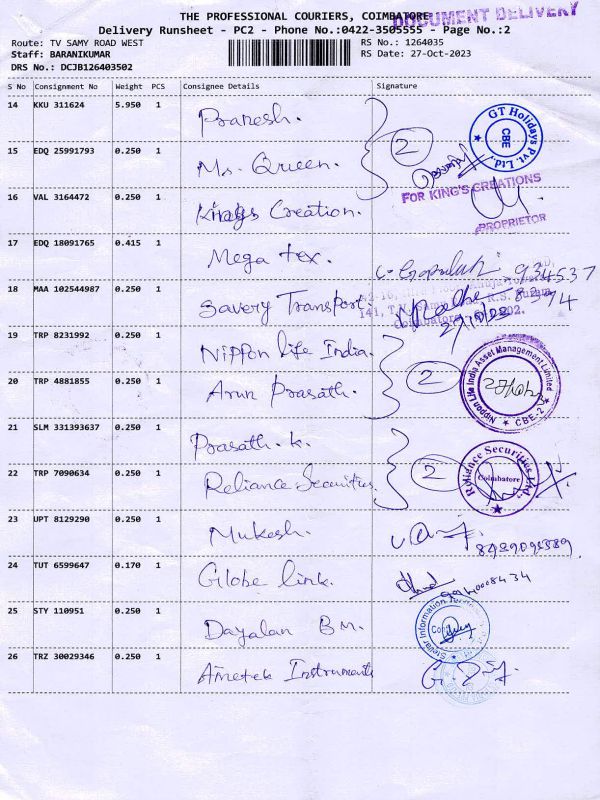 THE PROFESSIONAL COURIERS, COIMBATORE
DOCUMENT DELIVERY
Delivery Runsheet - PC2 - Phone No.:0422-3505555 - Page No.:2
Route: TV SAMY ROAD WEST
RS No.: 1264035
Staff: BARANIKUMAR
RS Date: 27-Oct-2023
DRS No.: DCJB126403502
S No Consignment No Weight PCS Consignee Details Signature
14 KKU 311624 5.950 1 Pranesh.
2
GT Holidays Pvt. Ltd. CBE
15 EDQ 25991793 0.250 1 Ms. Queen.
FOR KING'S CREATIONS
16 VAL 3164472 0.250 1 Kings Creation.
PROPRIETOR
17 EDQ 18091765 0.415 1 Mega tex.
18 MAA 102544987 0.250 1 Savery Transport.
19 TRP 8231992 0.250 1 Nippon life India.
20 TRP 4881855 0.250 1 Arun Prasath.
2
Nippon Life India Asset Management Limited CBE-2
21 SLM 331393637 0.250 1 Prasath. k.
22 TRP 7090634 0.250 1 Reliance Securities
2
Reliance Securities Ltd. Coimbatore
23 UPT 8129290 0.250 1 Mukesh.
24 TUT 6599647 0.170 1 Globe link.
25 STY 110951 0.250 1 Dayalan B M.
Stellar Information
26 TRZ 30029346 0.250 1 Ametek Instruments